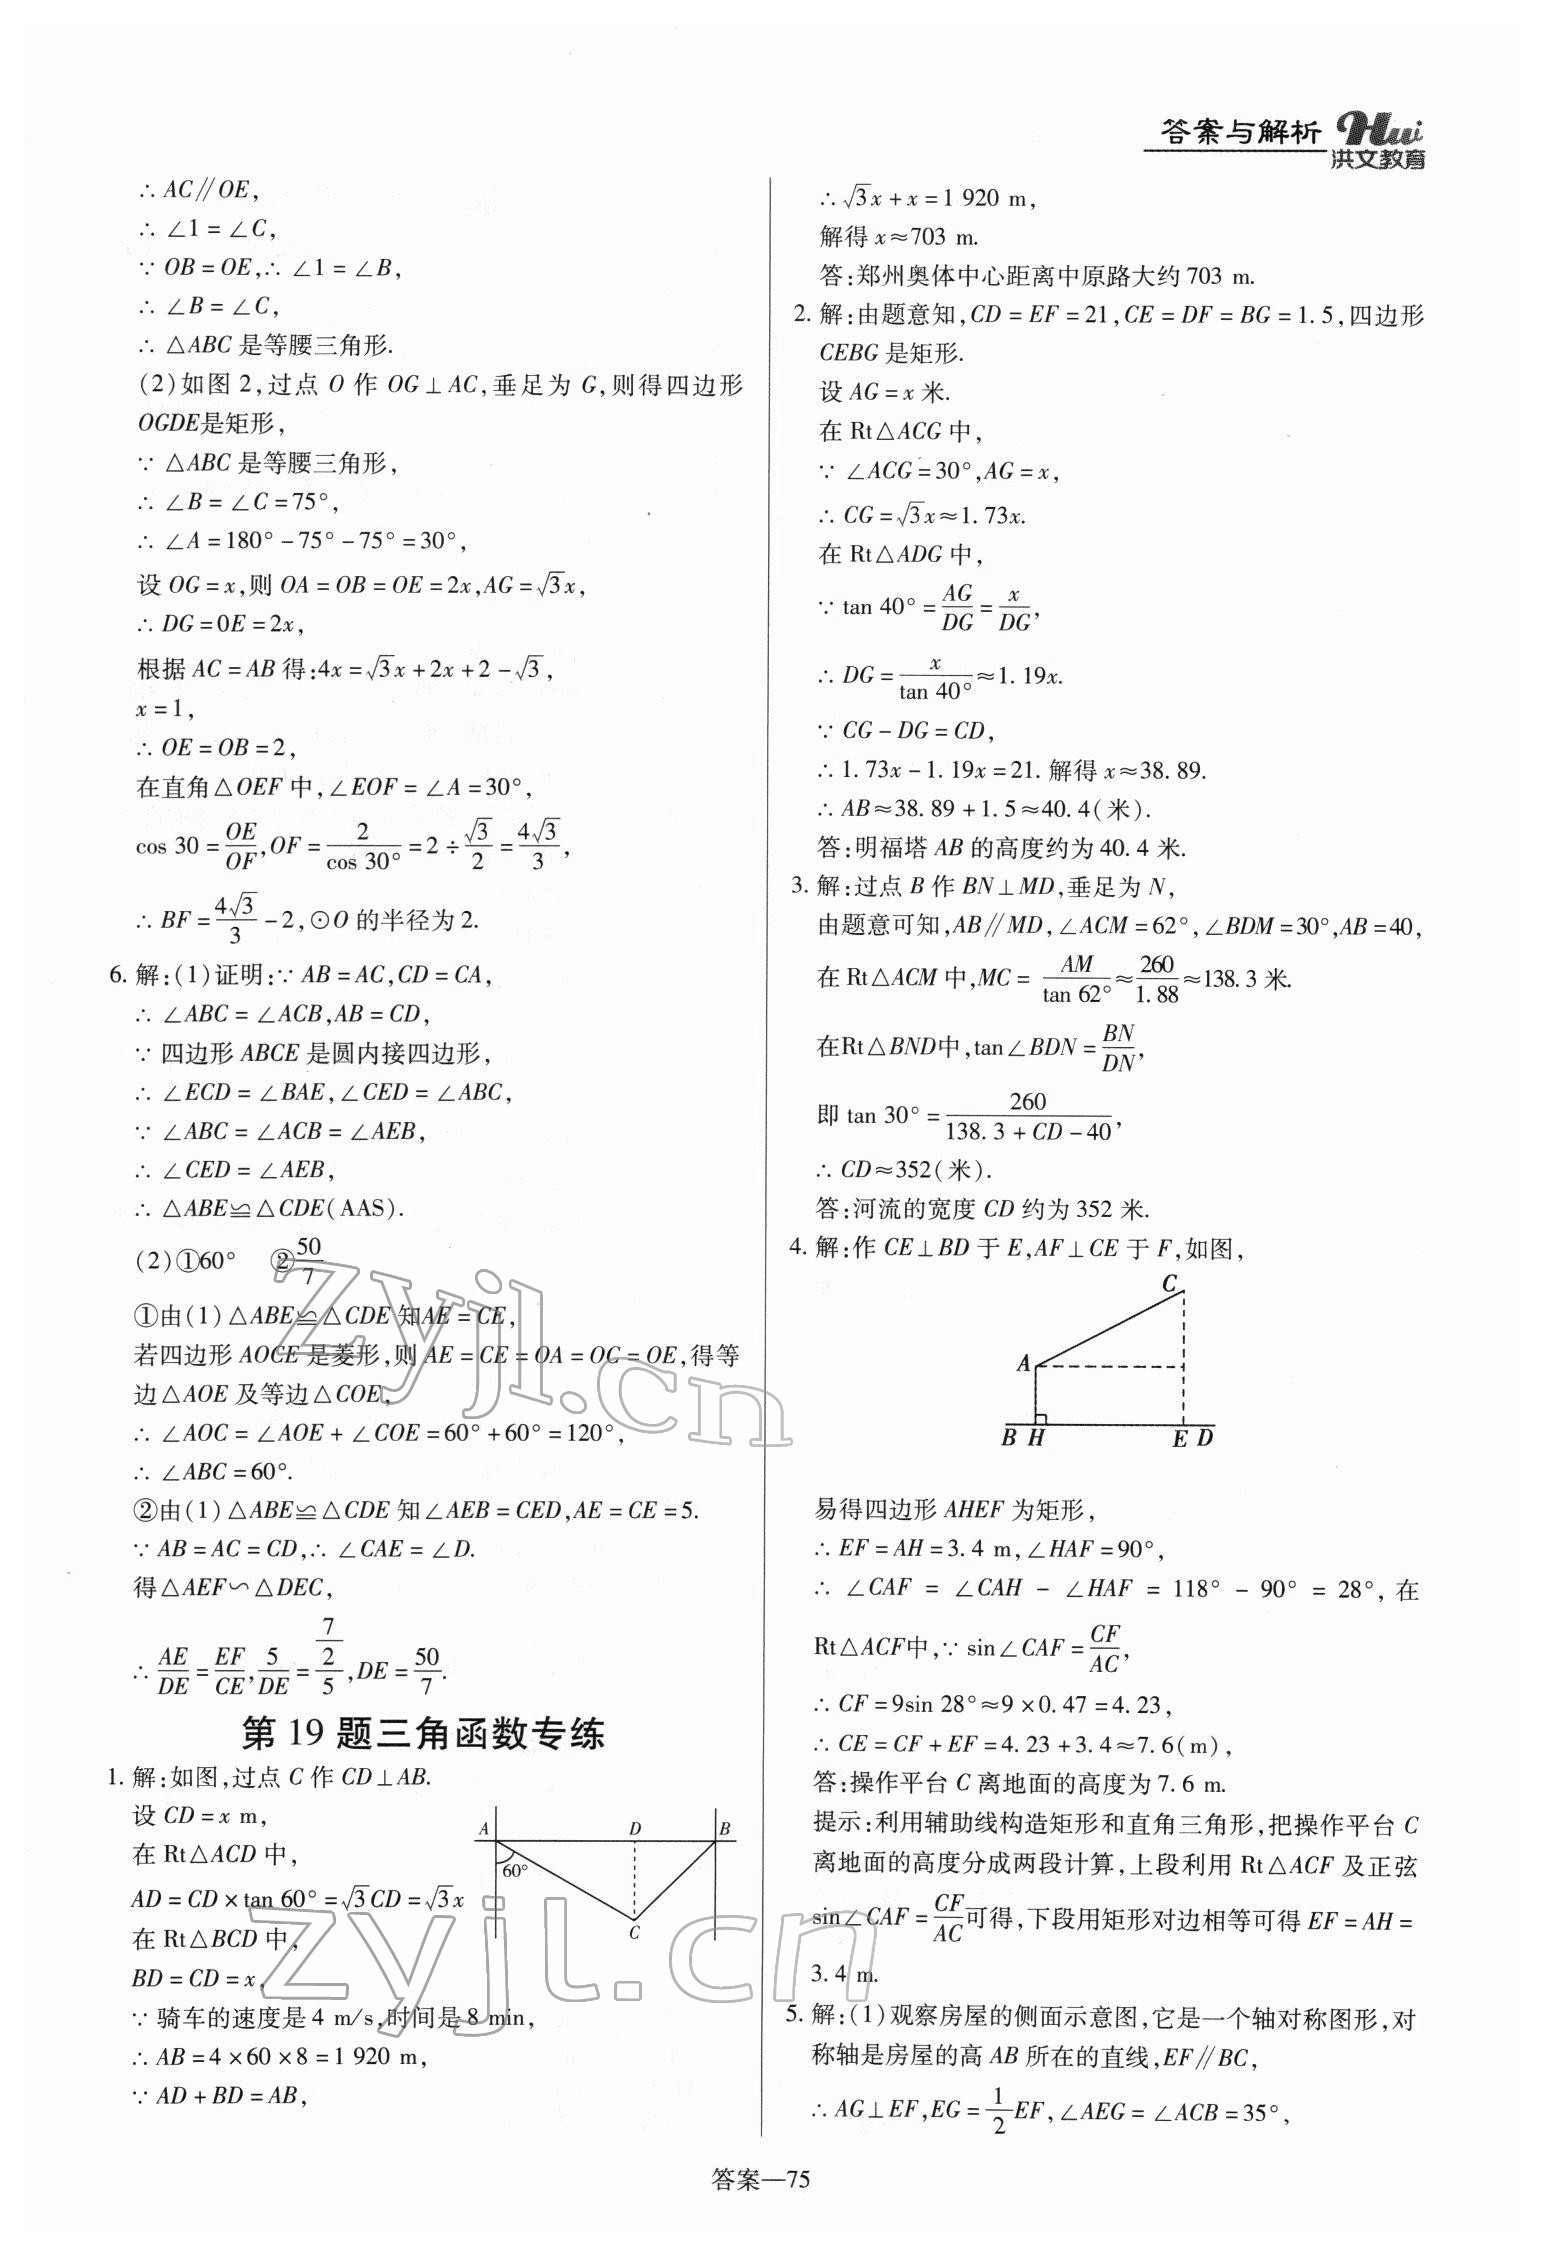 答案与解析
Hui
洪文教育
∴ AC∥OE,
∴ ∠1 = ∠C,
∵ OB = OE,∴ ∠1 = ∠B,
∴ ∠B = ∠C,
∴ △ABC 是等腰三角形.
(2)如图 2,过点 O 作 OG⊥AC,垂足为 G,则得四边形
OGDE是矩形,
∵ △ABC 是等腰三角形,
∴ ∠B = ∠C = 75°,
∴ ∠A = 180° - 75° - 75° = 30°,
设 OG = x,则 OA = OB = OE = 2x,AG = √3x,
∴ DG = 0E = 2x,
根据 AC = AB 得:4x = √3x + 2x + 2 - √3,
x = 1,
∴ OE = OB = 2,
在直角△OEF 中,∠EOF = ∠A = 30°,
cos 30 = OE/OF,OF = 2/cos 30° = 2 ÷ √3/2 = 4√3/3,
∴ BF = 4√3/3 - 2,⊙O 的半径为 2.
6. 解:(1)证明:∵ AB = AC,CD = CA,
∴ ∠ABC = ∠ACB,AB = CD,
∵ 四边形 ABCE 是圆内接四边形,
∴ ∠ECD = ∠BAE,∠CED = ∠ABC,
∵ ∠ABC = ∠ACB = ∠AEB,
∴ ∠CED = ∠AEB,
∴ △ABE≌△CDE(AAS).
(2)①60° ②50/7
①由(1)△ABE≌△CDE 知AE = CE,
若四边形 AOCE 是菱形,则 AE = CE = OA = OC = OE,得等
边△AOE 及等边△COE,
∴ ∠AOC = ∠AOE + ∠COE = 60° + 60° = 120°,
∴ ∠ABC = 60°.
②由(1)△ABE≌△CDE 知∠AEB = CED,AE = CE = 5.
∵ AB = AC = CD,∴ ∠CAE = ∠D.
得△AEF∽△DEC,
∴ AE/DE = EF/CE, 5/DE = (7/2)/5, DE = 50/7.
第 19 题三角函数专练
1. 解:如图,过点 C 作 CD⊥AB.
设 CD = x m,
在 Rt△ACD 中,
AD = CD × tan 60° = √3CD = √3x
在 Rt△BCD 中,
BD = CD = x,
A D B
60°
C
∵ 骑车的速度是 4 m/s,时间是 8 min,
∴ AB = 4 × 60 × 8 = 1 920 m,
∵ AD + BD = AB,
∴ √3x + x = 1 920 m,
解得 x≈703 m.
答:郑州奥体中心距离中原路大约 703 m.
2. 解:由题意知,CD = EF = 21,CE = DF = BG = 1. 5,四边形
CEBG 是矩形.
设 AG = x 米.
在 Rt△ACG 中,
∵ ∠ACG = 30°,AG = x,
∴ CG = √3x≈1. 73x.
在 Rt△ADG 中,
∵ tan 40° = AG/DG = x/DG,
∴ DG = x/tan 40°≈1. 19x.
∵ CG - DG = CD,
∴ 1. 73x - 1. 19x = 21. 解得 x≈38. 89.
∴ AB≈38. 89 + 1. 5≈40. 4(米).
答:明福塔 AB 的高度约为 40. 4 米.
3. 解:过点 B 作 BN⊥MD,垂足为 N,
由题意可知,AB∥MD,∠ACM = 62°,∠BDM = 30°,AB = 40,
在 Rt△ACM 中,MC = AM/tan 62°≈260/1. 88≈138. 3 米.
在Rt△BND中,tan∠BDN = BN/DN,
即 tan 30° = 260/(138. 3 + CD - 40),
∴ CD≈352(米).
答:河流的宽度 CD 约为 352 米.
4. 解:作 CE⊥BD 于 E,AF⊥CE 于 F,如图,
C
A
B H E D
易得四边形 AHEF 为矩形,
∴ EF = AH = 3. 4 m,∠HAF = 90°,
∴ ∠CAF = ∠CAH - ∠HAF = 118° - 90° = 28°, 在
Rt△ACF中,∵ sin∠CAF = CF/AC,
∴ CF = 9sin 28°≈9 × 0. 47 = 4. 23,
∴ CE = CF + EF = 4. 23 + 3. 4≈7. 6(m),
答:操作平台 C 离地面的高度为 7. 6 m.
提示:利用辅助线构造矩形和直角三角形,把操作平台 C
离地面的高度分成两段计算,上段利用 Rt△ACF 及正弦
sin∠CAF = CF/AC可得,下段用矩形对边相等可得 EF = AH =
3. 4 m.
5. 解:(1)观察房屋的侧面示意图,它是一个轴对称图形,对
称轴是房屋的高 AB 所在的直线,EF∥BC,
∴ AG⊥EF,EG = 1/2EF,∠AEG = ∠ACB = 35°,
答案—75
zyjl.cn
zyjl.cn